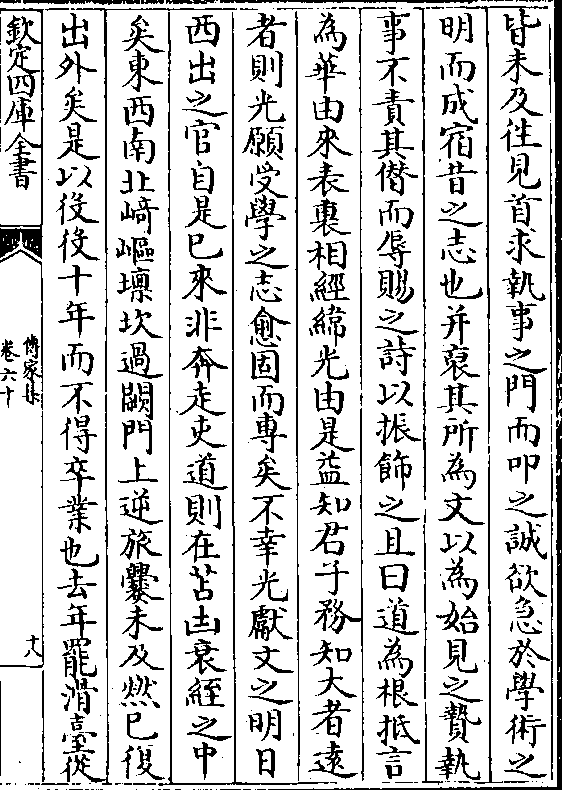 皆未及往見首求執事之門而叩之誠欲急於學術之
明而成宿昔之志也并裒其所為文以為始見之贄執
事不責其僭而辱賜之詩以振飾之且曰道為根抵言
為華由來表裏相經緯光由是益知君子務知大者逺
者則光願受學之志愈固而專矣不幸光獻文之明日
西出之官自是已來非奔走吏道則在苫凷衰絰之中
矣東西南北﨑嶇壈坎過闕門上逆旅爨未及燃已復
出外矣是以役役十年而不得卒業也去年罷滑臺從
欽定四庫全書
傳家集
卷六十
十八